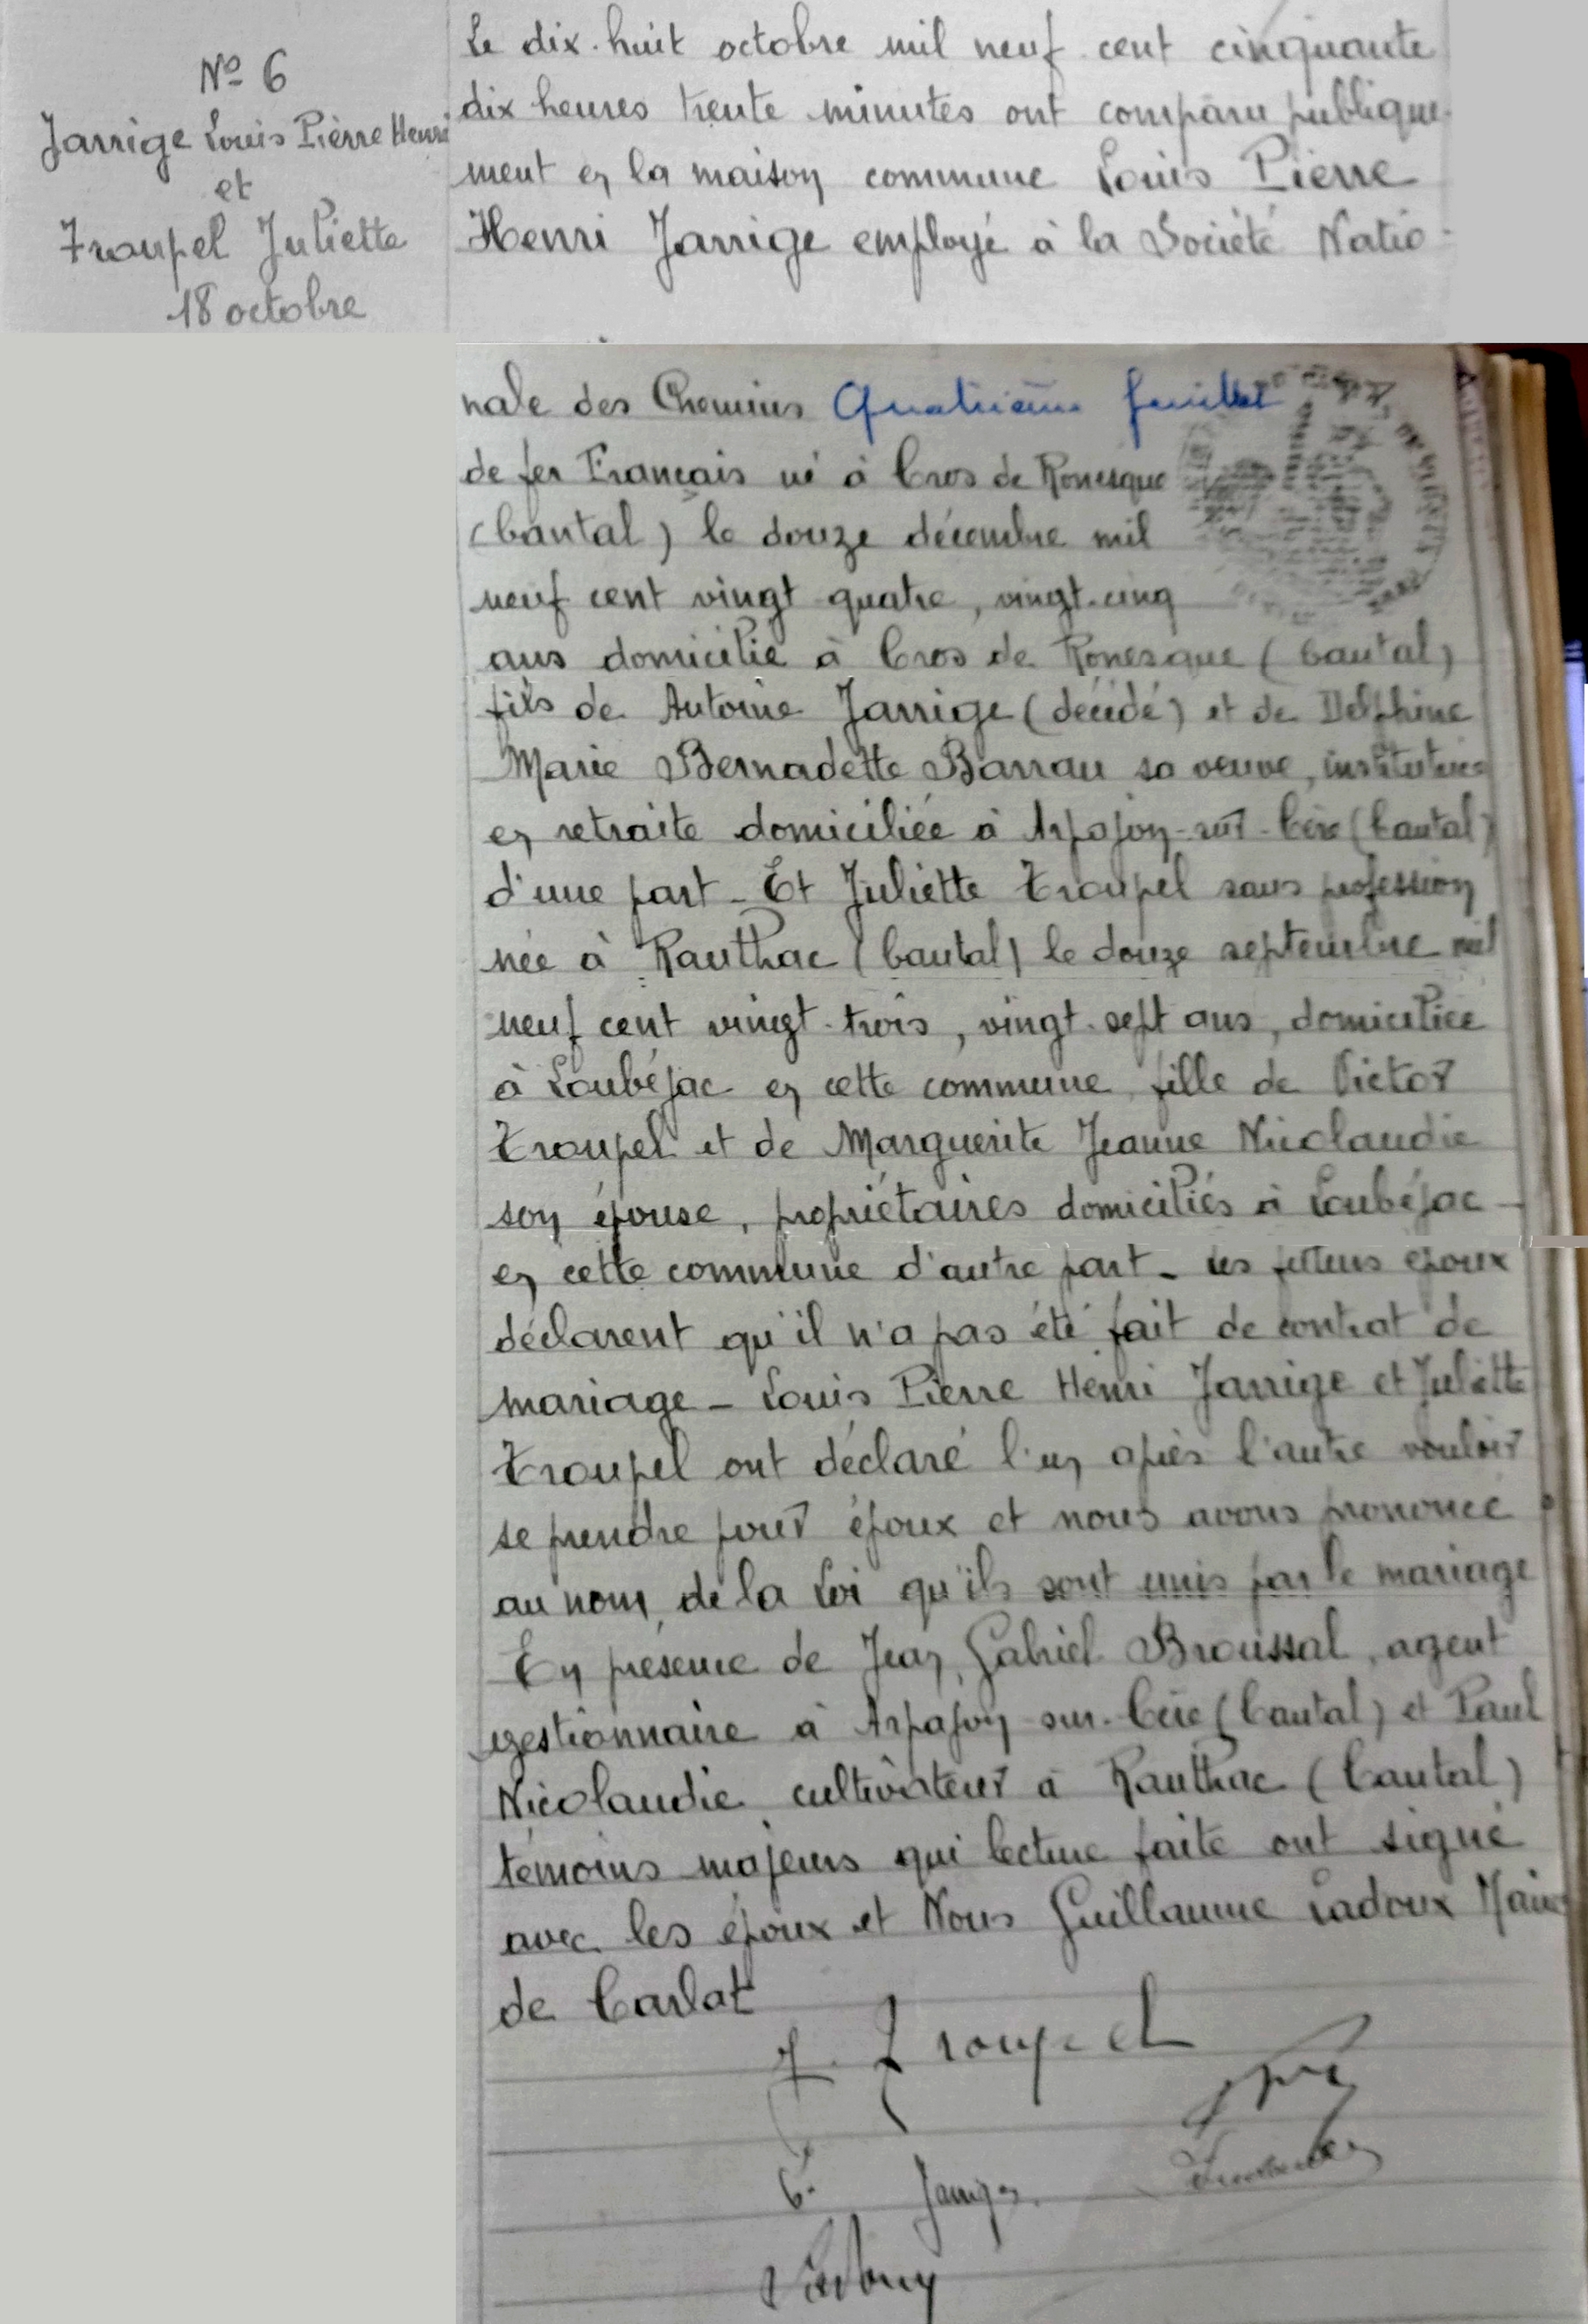 Nº 6
Jarrige Louis Pierre Henri
et
Troupel Juliette
18 octobre
Le dix-huit octobre mil neuf cent cinquante
dix heures trente minutes ont comparu publique-
ment en la maison commune Louis Pierre
Henri Jarrige employé à la Société Natio-
nale des Chemins Quatrième feuillet
de fer Français né à Cros de Ronesque
(Cantal) le douze décembre mil
neuf cent vingt quatre, vingt-cinq
ans domicilié à Cros de Ronesque (Cantal)
fils de Antoine Jarrige (décédé) et de Delphine
Marie Bernadette Barrau sa veuve, institutrice
en retraite domiciliée à Arpajon-sur-Cère (Cantal)
d'une part - Et Juliette Troupel sans profession
née à Raulhac (Cantal) le douze septembre mil
neuf cent vingt-trois, vingt-sept ans, domiciliée
à Loubéjac en cette commune fille de Victor
Troupel et de Marguerite Jeanne Nicolaudie
son épouse, propriétaires domiciliés à Loubéjac -
en cette commune d'autre part - Les futurs époux
déclarent qu'il n'a pas été fait de contrat de
mariage - Louis Pierre Henri Jarrige et Juliette
Troupel ont déclaré l'un après l'autre vouloir
se prendre pour époux et nous avons prononcé
au nom de la Loi qu'ils sont unis par le mariage
En présence de Jean Gabriel Broussal, agent
gestionnaire à Arpajon-sur-Cère (Cantal) et Paul
Nicolaudie cultivateur à Raulhac (Cantal)
témoins majeurs qui lecture faite ont signé
avec les époux et Nous Guillaume Ladoux Maire
de Carlat
J. Troupel
Jarrige